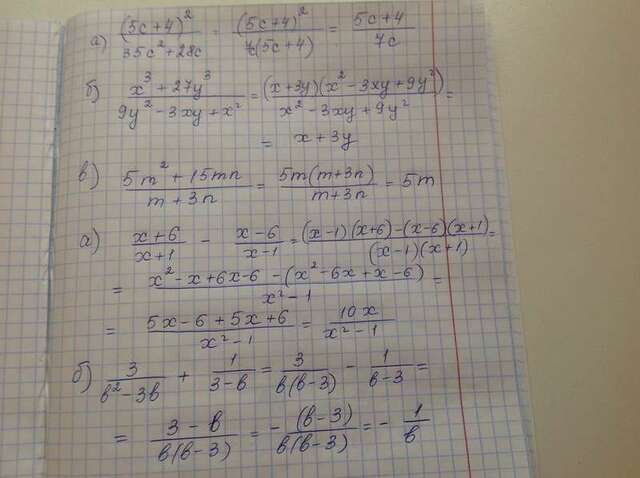 а) (5c+4)²/35c²+28c = (5c+4)²/7(5c+4) = 5c+4/7c
б) x³+27y³/9y²-3xy+x² = (x+3y)(x²-3xy+9y²)/x²-3xy+9y² =
= x+3y
в) 5m²+15mn/m+3n = 5m(m+3n)/m+3n = 5m
а) x+6/x+1 - x-6/x-1 = (x-1)(x+6)-(x-6)(x+1)/(x-1)(x+1) =
= x²-x+6x-6-(x²-6x+x-6)/x²-1 =
= 5x-6+5x+6/x²-1 = 10x/x²-1
б) 3/b²-3b + 1/3-b = 3/b(b-3) - 1/b-3 =
= 3-b/b(b-3) = - (b-3)/b(b-3) = - 1/b